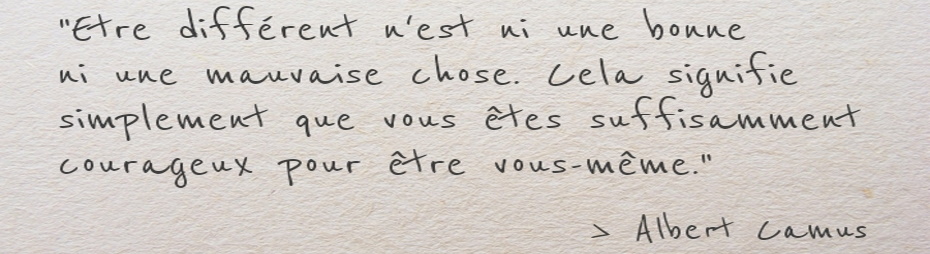 "Etre différent n'est ni une bonne
ni une mauvaise chose. Cela signifie
simplement que vous êtes suffisamment
courageux pour être vous-même."
> Albert Camus